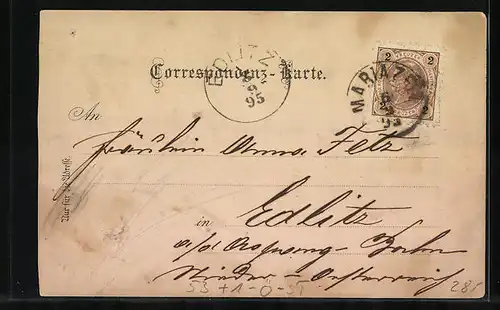 EDLITZ
9
95
2 2
MARIAZELL
Correspondenz-Karte.
An
Fräulein Anna Fetz
in Edlitz
a/d Aspang-Bahn
Nieder-Oesterreich
Nur für die Adresse.
53 +1-Ö-ST
281